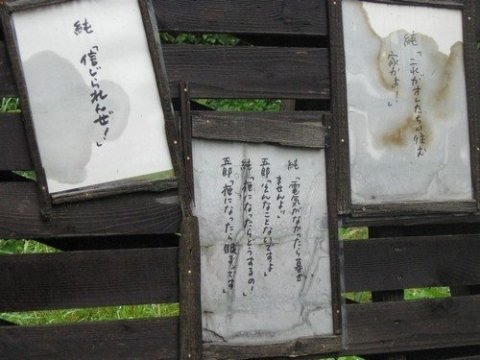 純「これがオレたちの住む
家かよ!」
純「電気がなかったら暮せ
ませんよッ」
五郎「そんなことないですよ」
純「夜になったらどうするの!」
五郎「夜になったら眠るンです」
純
「信じられんぜ!」